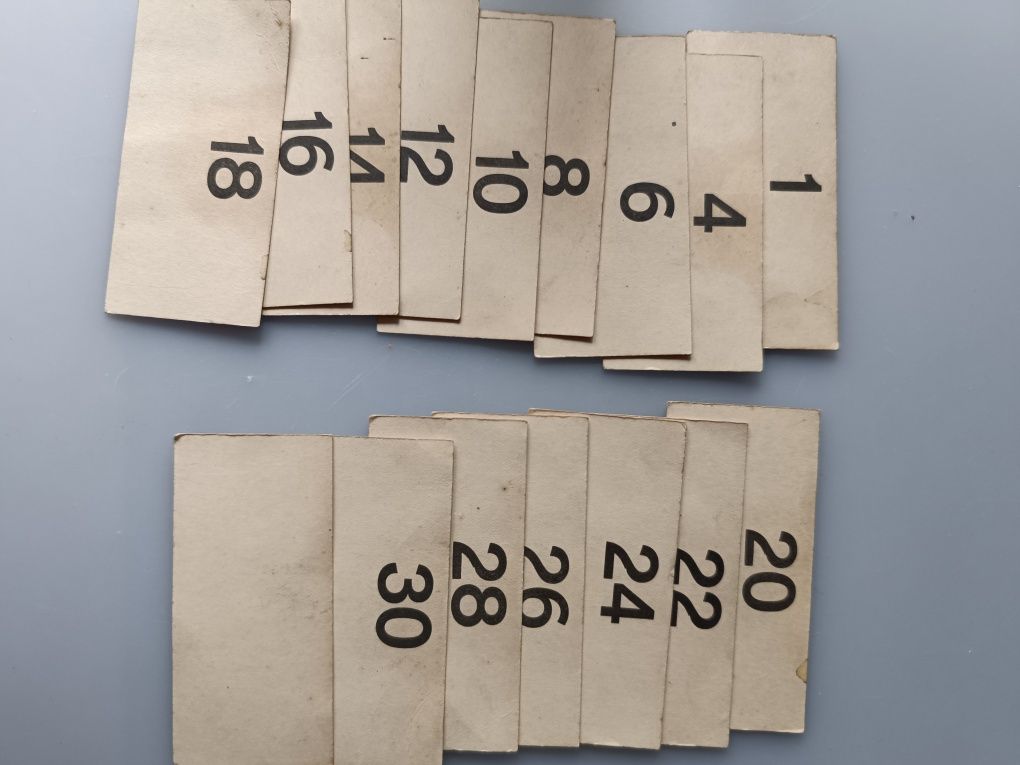 1
4
6
8
10
12
14
16
18
20
22
24
26
28
30